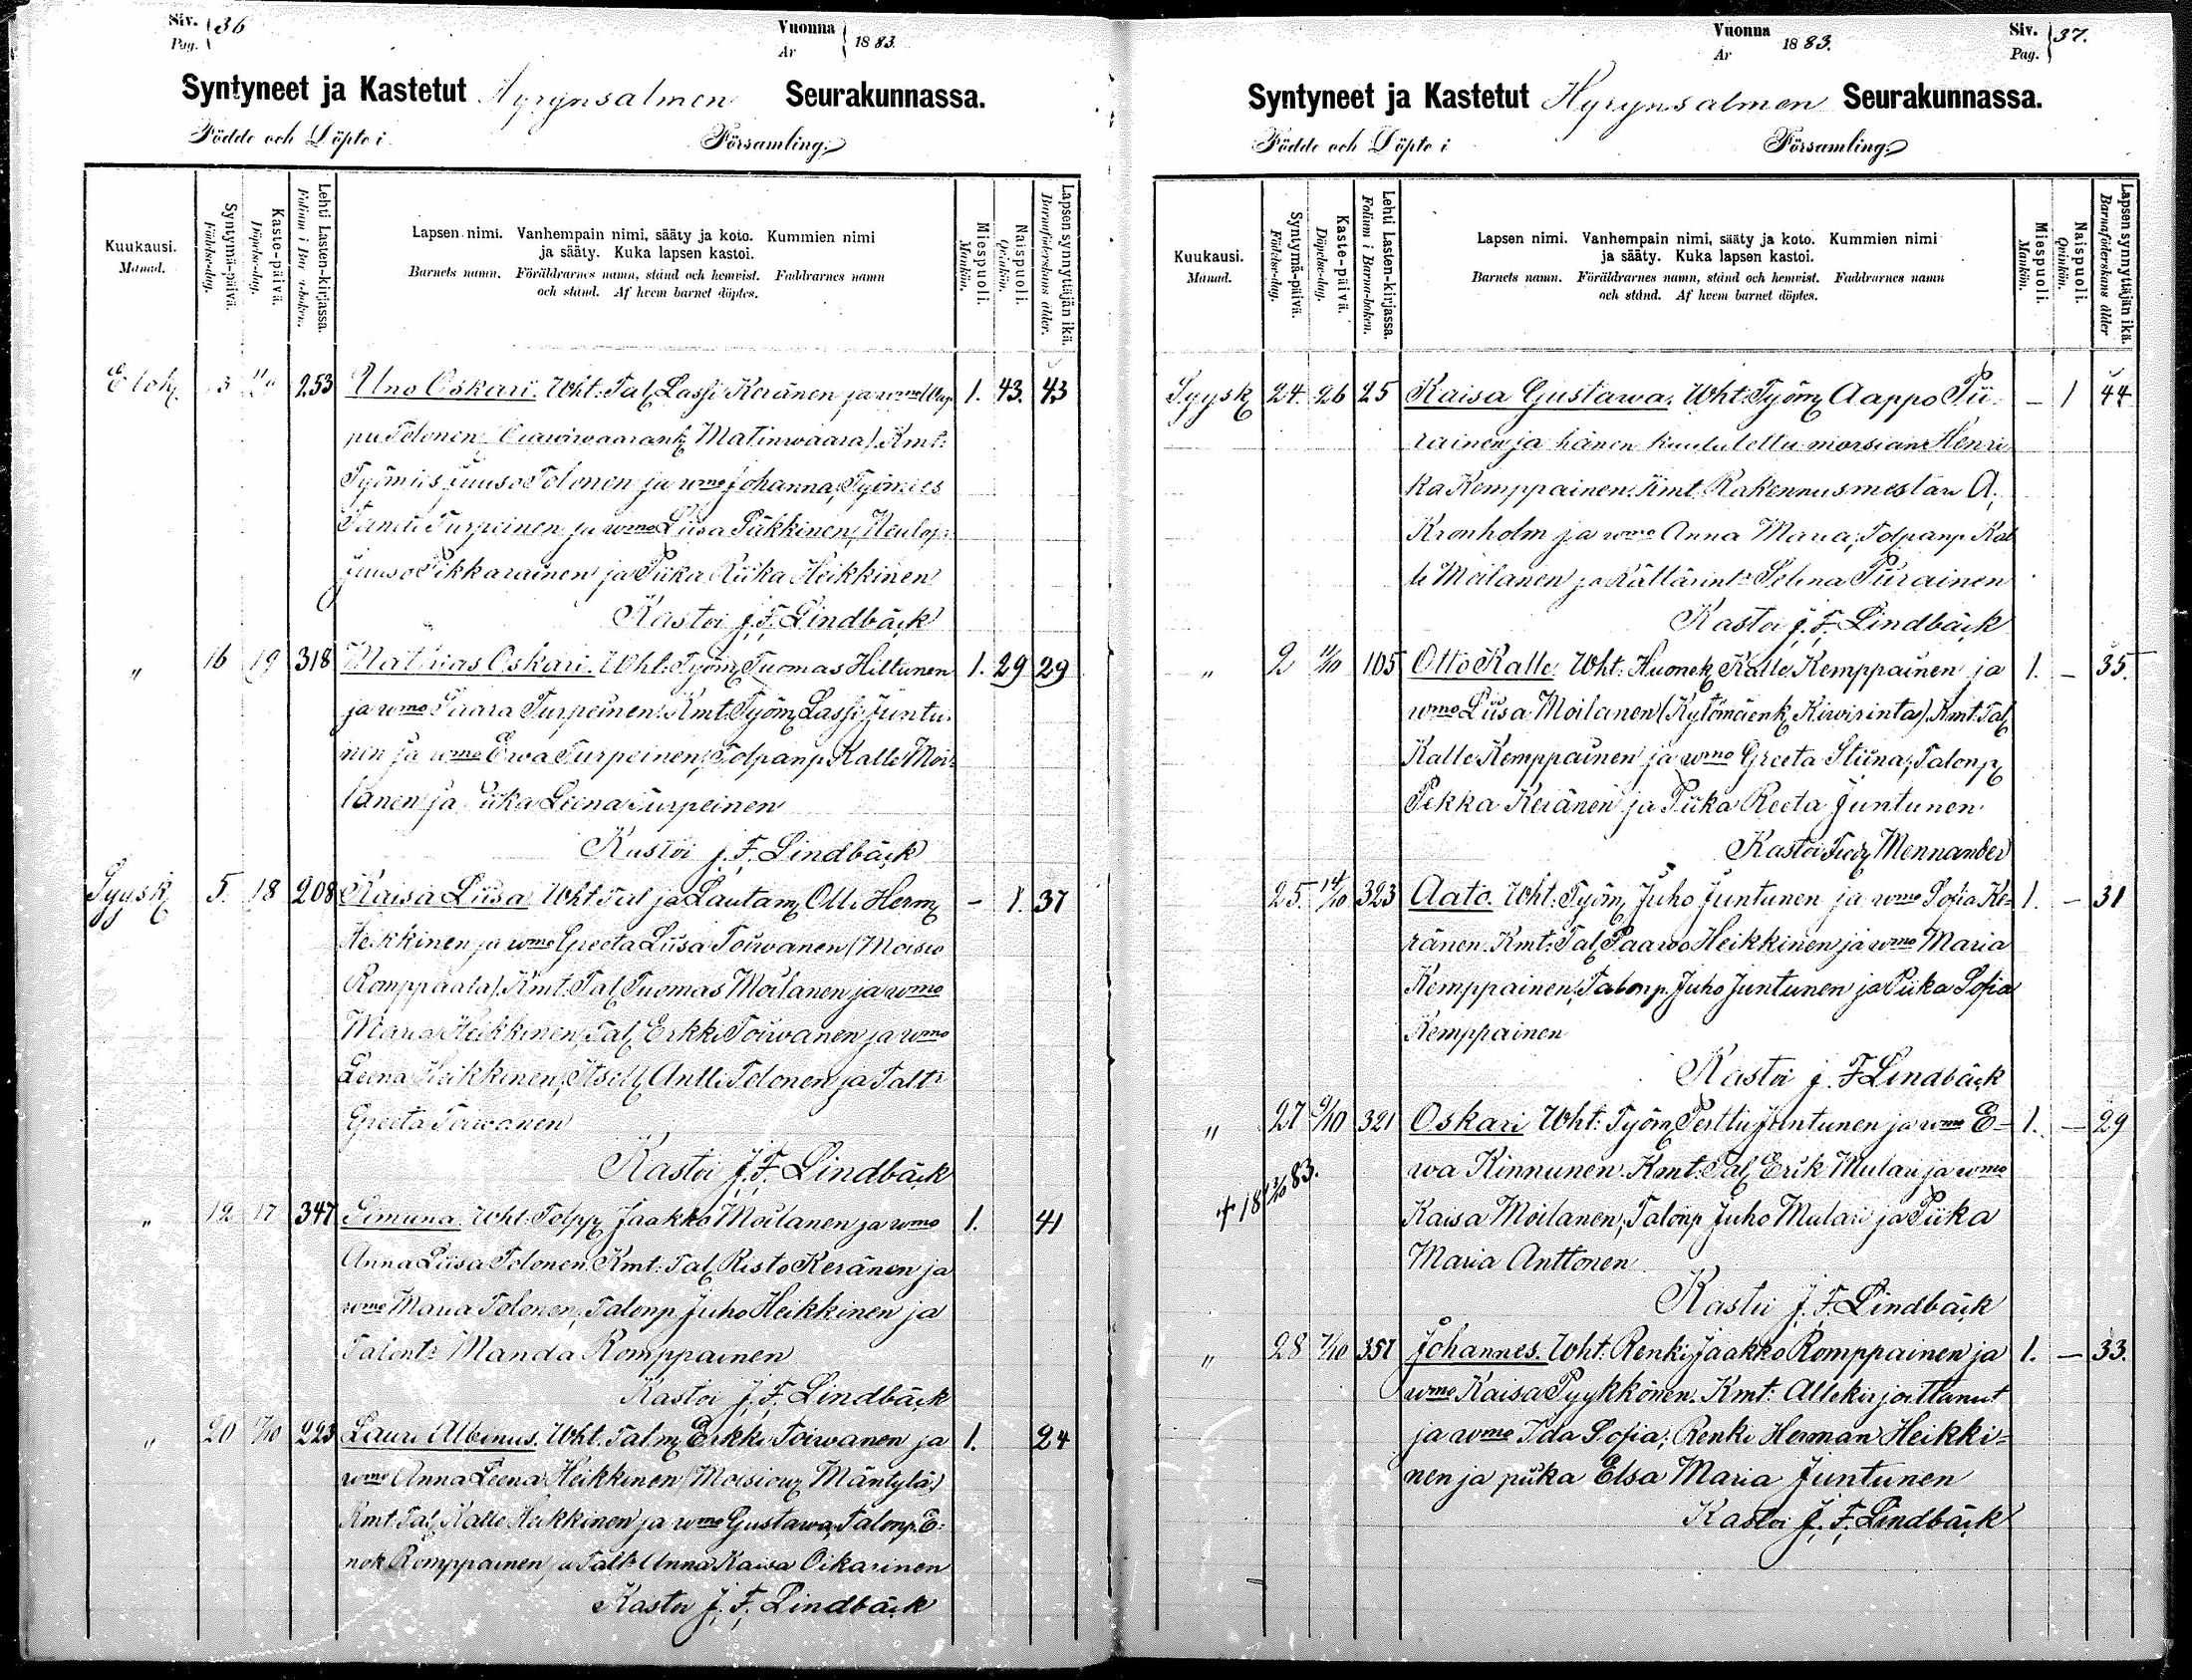 Siv. 36
Pag.
Vuonna 1883.
År
Syntyneet ja Kastetut Hyrynsalmen Seurakunnassa.
Födde och Döpte i Församling.
Kuukausi.
Månad.
Syntymä-päivä.
Födelse-dag.
Kaste-päivä.
Döpelse-dag.
Lehti Lasten-kirjassa.
Folium i Barnaboken.
Lapsen nimi. Vanhempain nimi, sääty ja koto. Kummien nimi
ja sääty. Kuka lapsen kastoi.
Barnets namn. Föräldrarnes namn, stånd och hemvist. Faddrarnes namn
och stånd. Af hvem barnet döptes.
Miespuoli.
Mankön.
Naispuoli.
Qvinkön.
Lapsen synnyttäjän ikä.
Barnaföderskans ålder.
Elok. 3 253 Uno Oskari. Wht: Tal. Lassi Keränen ja wmo 1. 43. 43
pu Tolonen Matinwaara). Kmt:
Työmies Juuso Tolonen ja wmo Johanna; Työmies
Turpeinen ja wmo Liisa Päkkinen;
Juuso Pikkarainen ja Piika Riika Heikkinen
Kastoi J. F. Lindbäck
" 16 19 318 Mathias Oskari. Wht. Työm. Tuomas Hiltunen 1. 29 29
ja wmo Saara Turpeinen. Kmt. Työm. Lassi Juntu-
nen ja wmo Ewa Turpeinen; Tolpanp. Kalle Moi-
lanen ja Piika Leena Turpeinen
Kastoi J. F. Lindbäck
Syysk. 5. 18 208 Kaisa Liisa Wht Tal ja Lautam. Olli Herm. - 1. 37
Heikkinen ja wmo Greeta Liisa Toiwanen (Moisio
Romppaala). Kmt. Tal. Tuomas Moilanen ja wmo
Maria Heikkinen, Tal. Erkki Toiwanen ja wmo
Leena Heikkinen, Itsell. Antti Tolonen ja Talt:
Greeta Toiwanen
Kastoi J. F. Lindbäck
" 12 17 347 Simuna. Wht. Tolpp. Jaakko Moilanen ja wmo 1. 41
Anna Liisa Tolonen. Kmt: Tal. Risto Keränen ja
wmo Maria Tolonen; Talonp. Juho Heikkinen ja
Talont: Manda Romppainen
Kastoi J. F. Lindbäck
" 20 7/10 223 Lauri Albinus. Wht. Talm. Erkki Toiwanen ja 1. 24
wmo Anna Leena Heikkinen (Moisiowr. Mäntylä)
Kmt: Tal. Kalle Heikkinen ja wmo Gustawa, Talonp. E-
nok Romppainen ja Talt: Anna Kaisa Oikarinen
Kastoi J. F. Lindbäck
Vuonna 1883.
År
Siv. 37.
Pag.
Syntyneet ja Kastetut Hyrynsalmen Seurakunnassa.
Födde och Döpte i Församling.
Kuukausi.
Månad.
Syntymä-päivä.
Födelse-dag.
Kaste-päivä.
Döpelse-dag.
Lehti Lasten-kirjassa.
Folium i Barna-boken.
Lapsen nimi. Vanhempain nimi, sääty ja koto. Kummien nimi
ja sääty. Kuka lapsen kastoi.
Barnets namn. Föräldrarnes namn, stånd och hemvist. Faddrarnes namn
och stånd. Af hvem barnet döptes.
Miespuoli.
Mankön.
Naispuoli.
Qvinkön.
Lapsen synnyttäjän ikä.
Barnaföderskans ålder
Syysk. 24. 26 25 Kaisa Gustawa. Wht: Työm. Aappo Pii- - 1 44
rainen ja hänen kuulutettu morsian Henri-
ka Kemppainen. Kmt. Rakennusmestari A.
Kronholm ja wmo Anna Maria; Tolpanp. Kal
le Moilanen ja Räätärint: Selma Piirainen
Kastoi J. F. Lindbäck
" 2 11/10 105 Otto Kalle. Wht: Huonek. Kalle Kemppainen ja 1. - 35.
wmo Liisa Moilanen (Kytömäenk. Kiwirinta). Kmt. Tal.
Kalle Kemppainen ja wmo Greeta Stiina; Talonp.
Pekka Keränen ja Piika Reeta Juntunen
Kastoi Fredr. Mennander
25. 14/10 323 Aato. Wht: Työm. Juho Juntunen ja wmo Sofia Ke- 1. - 31
ränen. Kmt: Tal. Paawo Heikkinen ja wmo Maria
Kemppainen; Talonp. Juho Juntunen ja Piika Sofia
Kemppainen
Kastoi J. F Lindbäck
" 27 9/10 321 Oskari Wht: Työm. Perttu Juntunen ja wmo E- 1. - 29
wa Kinnunen. Kmt: Tal. Erik Mulari ja wmo
Kaisa Moilanen; Talonp Juho Mulari ja Piika
Maria Anttonen
Kastoi J. F. Lindbäck
" 28 7/10 357 Johannes. Wht: Renki Jaakko Romppainen ja 1. - 33.
wmo Kaisa Pyykkönen. Kmt: Allekirjoittanut
ja wmo Ida Sofia; Renki Herman Heikki-
nen ja piika Elsa Maria Juntunen
Kastoi J. F. Lindbäck